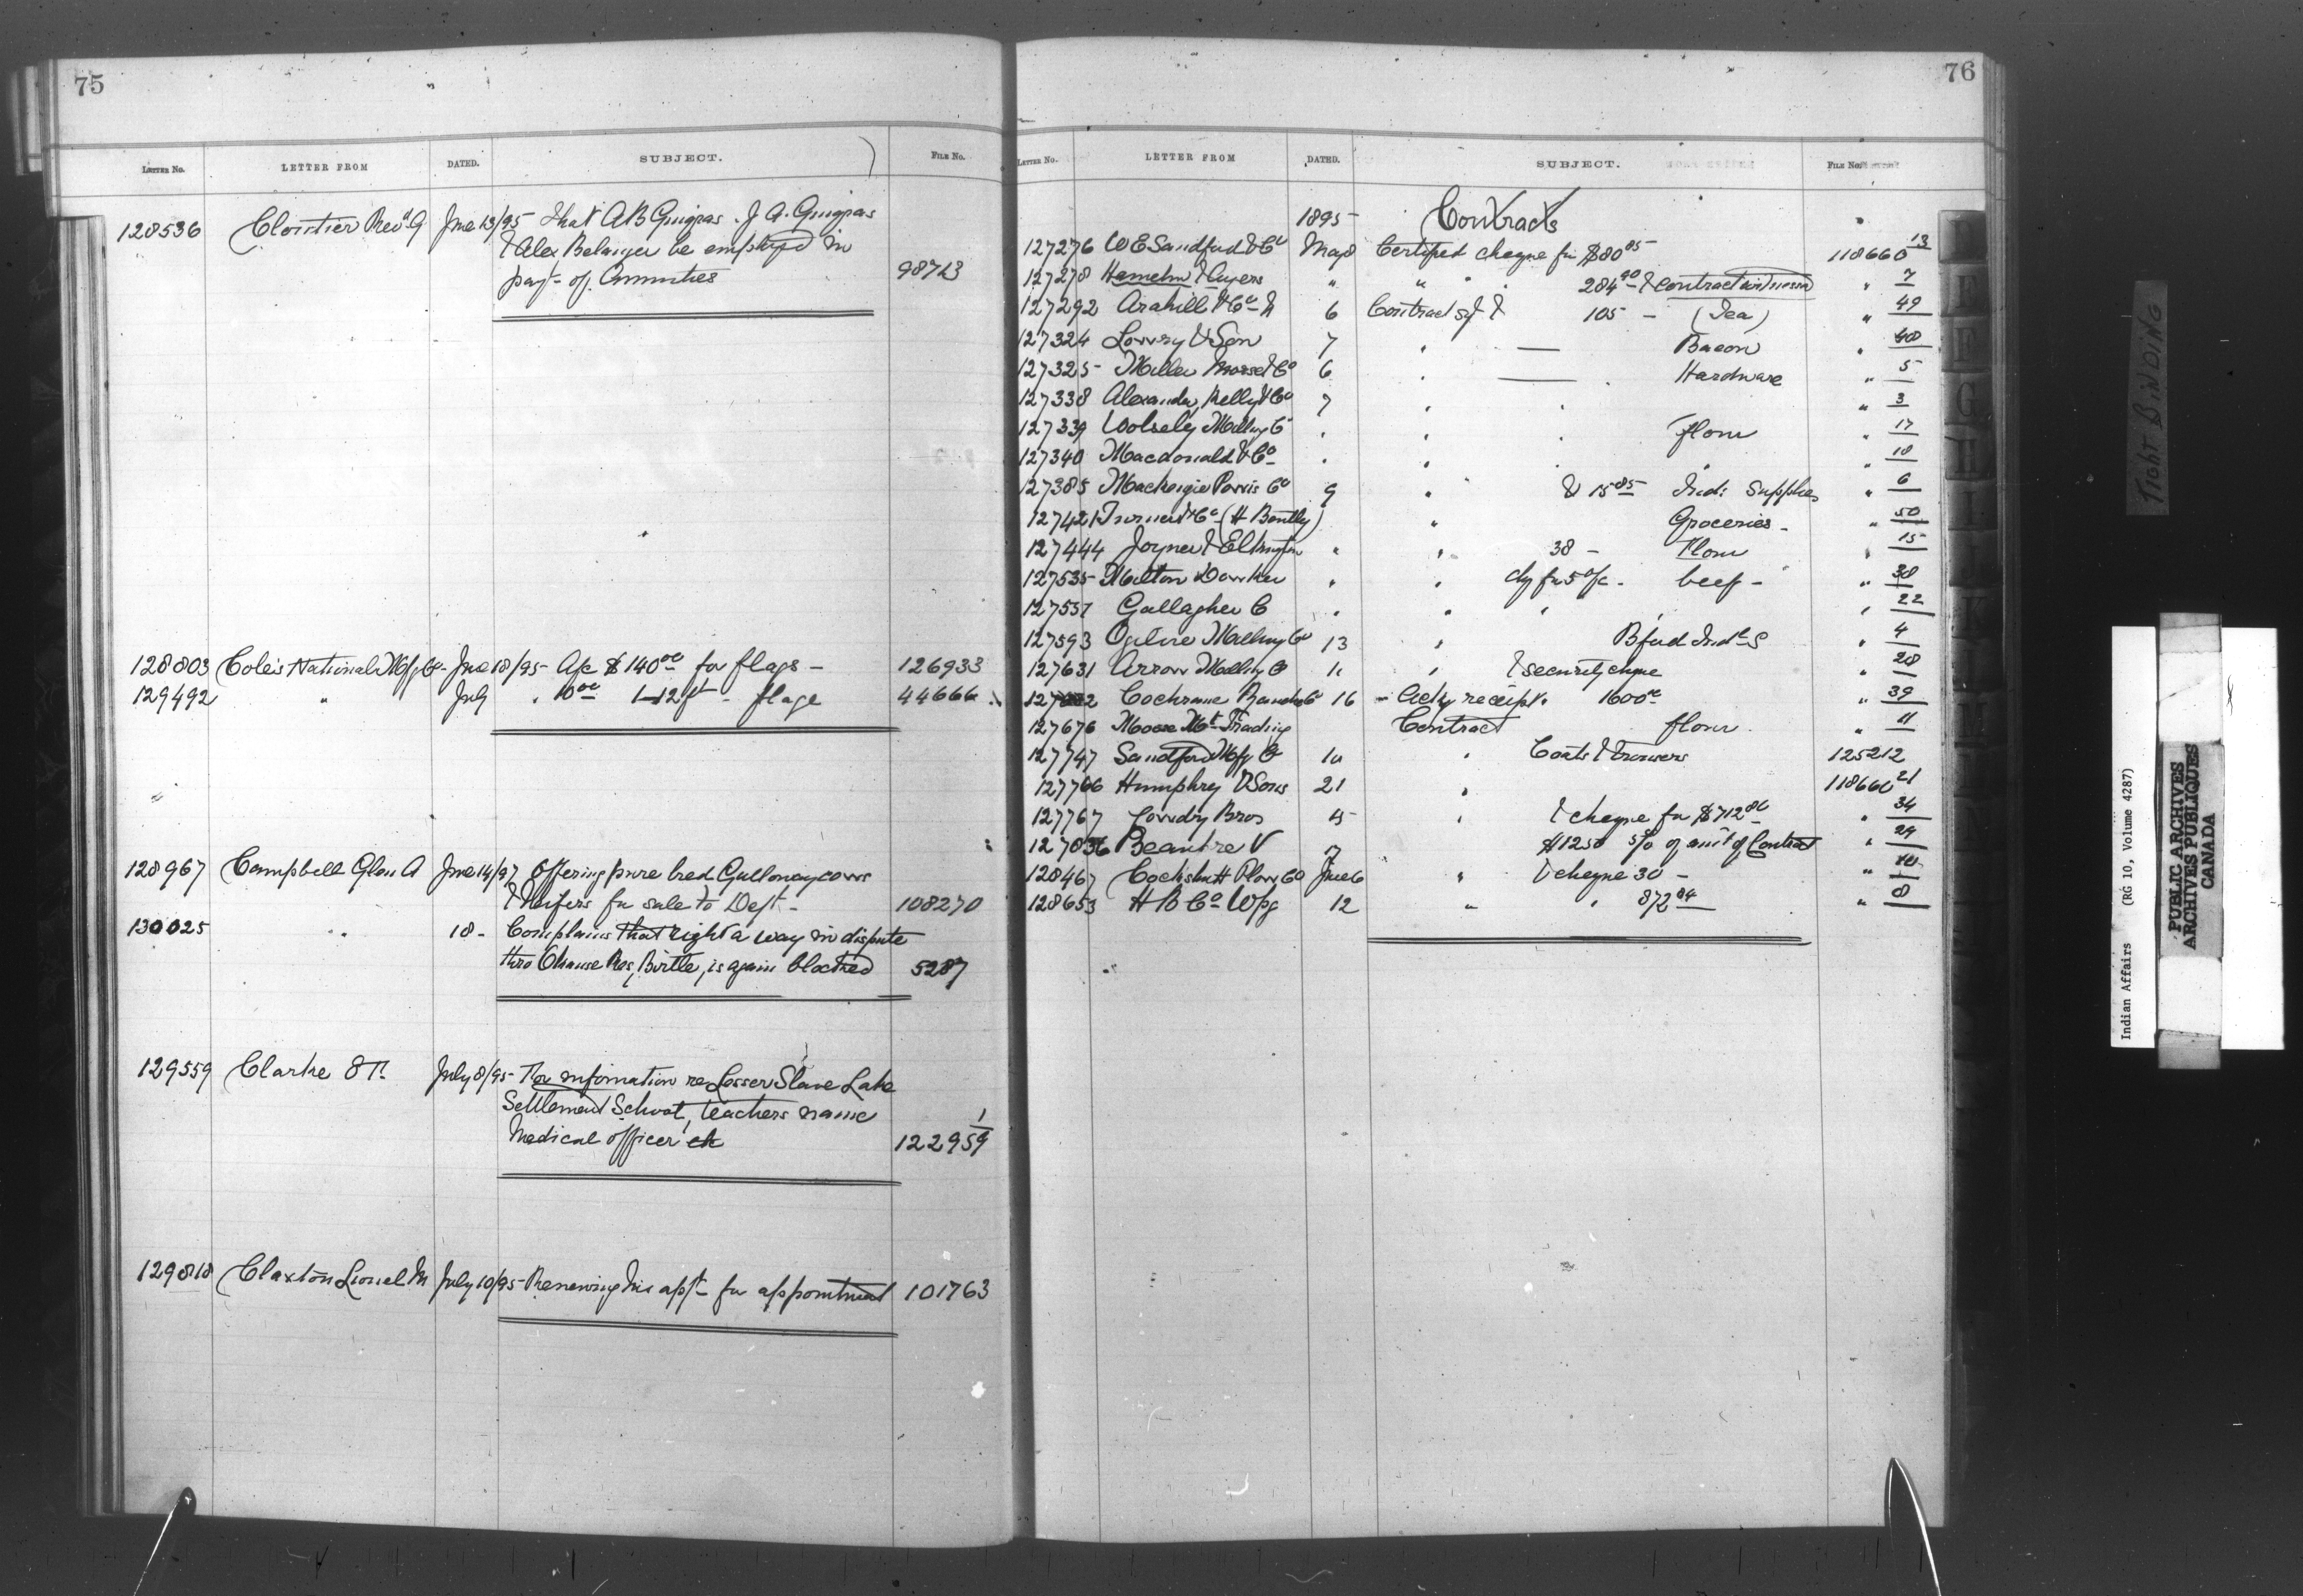 75
LETTER NO. LETTER FROM DATED. SUBJECT. FILE NO.
128536 Cloutier Revd G June 13/95 That A B Guigras. J A. Guigras
& Alex Belanger be employed in
payt of Annuities 98713
128803 Cole's National Mfg Co June 18/95 A/c $140.00 for flags - 126933
129492 " July " 10.00 1-12ft - flage 44666
128967 Campbell Glen A June 14/97 Offering pure bred Galloway cows
& heifers for sale to Dept - 108270
130025 " " 18 - Complains that right a way in dispute
thro Chause Res, Birtle, is again blocked 5287
129559 Clarke July 8/95 For information re Lesser Slave Lake
Settlement School, teachers name
Medical officer etc 122959/1
129818 Claxton Lionel M July 10/95 Renewing his appt for appointment 101763
76
LETTER NO. LETTER FROM DATED. SUBJECT. FILE NO.
1895 - Contracts
127276 W E Sandford & Co May 8 Certified cheque for $80 85 118660 13
127278 Hamelin & Ayers " " " 284 90 & contract " 7
127292 & Co 6 Contract sgd & 105 - (Tea) " 49
127324 Lowry & Son 7 " — Bacon " 48
127325 Miller Morse & Co 6 " — Hardware " 5
127338 Alexander, Kelly & Co 7 " " " 3
127339 Wolsely Milling Co " " " flour " 17
127340 Macdonald & Co " " " " " 18
127385 Mackenzie Co 9 " & 15 85 Indi Supplies " 6
127421 Turner & Co (H Bentley) " Groceries - " 50
127444 Joyner & Elkington " " 38 - Flour " 15
127535 Milton " " chq for 5 % - beef - " 38
127557 Gallagher C " " " " " 22
127593 Ogilvie Milling Co 13 " Bfud Indl S " 4
127631 Arrow Milling Co 11 " & security cheque " 28
Cochrane Ranche Co 16 - Ackg receipt. 1600 00 " 39
127676 Moose Mt Trading Contract flour " 11
127747 Sandford Mfg Co " Coats & trousers 125212
127766 Humphry & Sons 21 " 118660 21
127767 Bros 15 " & cheque for $712 80 " 34
127836 Beaupre V 17 $1250 5% of amt of Contract " 29
128467 Cockshutt Plow Co June 6 " & cheque 30 - "
128653 H B Co Wpg 12 " " 872 04 " 8
TIGHT BINDING
Indian Affairs (RG 10, Volume 4287)
PUBLIC ARCHIVES
ARCHIVES PUBLIQUES
CANADA